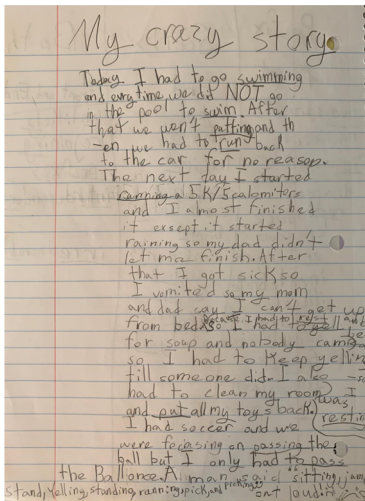 My crazy story
Today I had to go swimming
and evry time, we did NOT go
in the pool to swim. After
that we won't putting and th
-en we had to run back
to the car for no reason.
The next day I started
running a 5K/5calomiters
and I almost finished
it except it started
raining so my dad didn't
let me finish. After
that I got sick so
I vomited so my mom
and dad say I can't get up
from bed so I had to yell
because I had to rest
for soup and nobody came
so I had to keep yellin
till someone did. I also
had to clean my room I
and put all my toys back. was
I had soccer and we restin
were focasing on passing the
ball but I only had to pass
the Ball once. A man said sitting,
stand, Yelling, standing, running, pick, and out loud